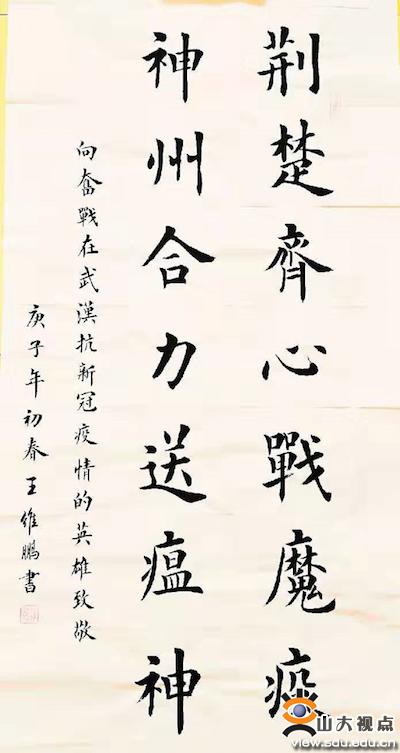 荆楚齊心戰魔疫
神州合力送瘟神
向奮戰在武漢抗新冠疫情的英雄致敬
庚子年初春王維鵬書
山大视点
view.sdu.edu.cn